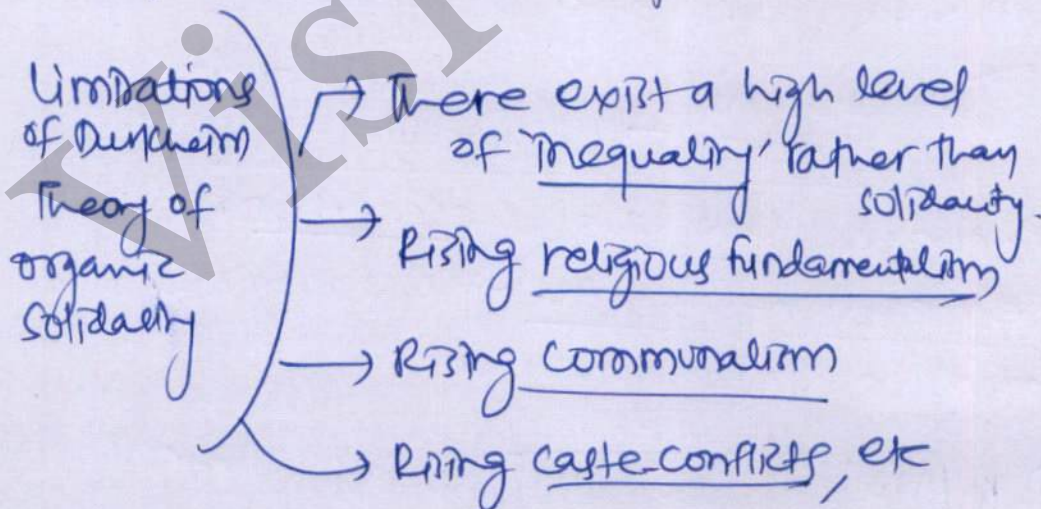 Limitations
of Durkheim
Theory of
organic
solidarity
→ There exist a high level
of 'inequality' rather than
solidarity.
→ Rising religious fundamentalism
→ Rising communalism
→ Rising caste-conflicts, etc
Vis